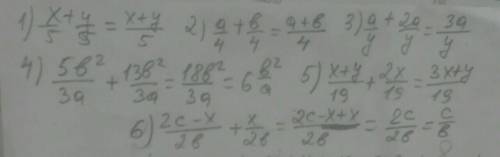 1) x/5 + y/5 = x+y/5 2) a/4 + b/4 = a+b/4 3) a/y + 2a/y = 3a/y
4) 5b²/3a + 13b²/3a = 18b²/3a = 6 b²/a 5) x+y/19 + 2x/19 = 3x+y/19
6) 2c-x/2b + x/2b = 2c-x+x/2b = 2c/2b = c/b